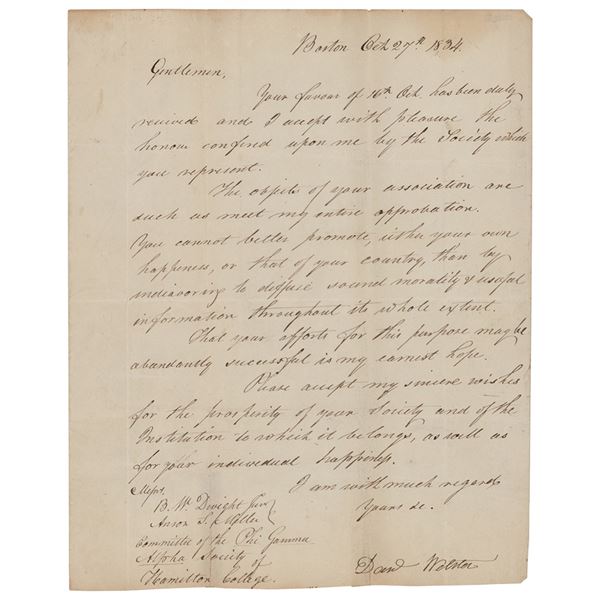 Boston Oct 27th 1834.
Gentlemen,
Your favour of 16th Oct. has been duly
recived and I accept with pleasure the
honour confired upon me by the Society which
you represent.
The objects of your association are
such as meet my entire approbation.
You cannot better promote, either your own
happiness, or that of your country, than by
indeavoring to diffuse sound morality & useful
information throughout its whole extent.
That your efforts for this purpose may be
abundantly successful is my earnest hope.
Please accept my sincere wishes
for the prosperity of your Society and of the
Institution to which it belongs, as well as
for your individual happiness.
I am with much regard
Yours &c.
Messrs.
B. W. Dwight Jun
Anson S. Miller
Committee of the Phi Gamma
Alpha Society of
Hamilton College.
Danl Webster